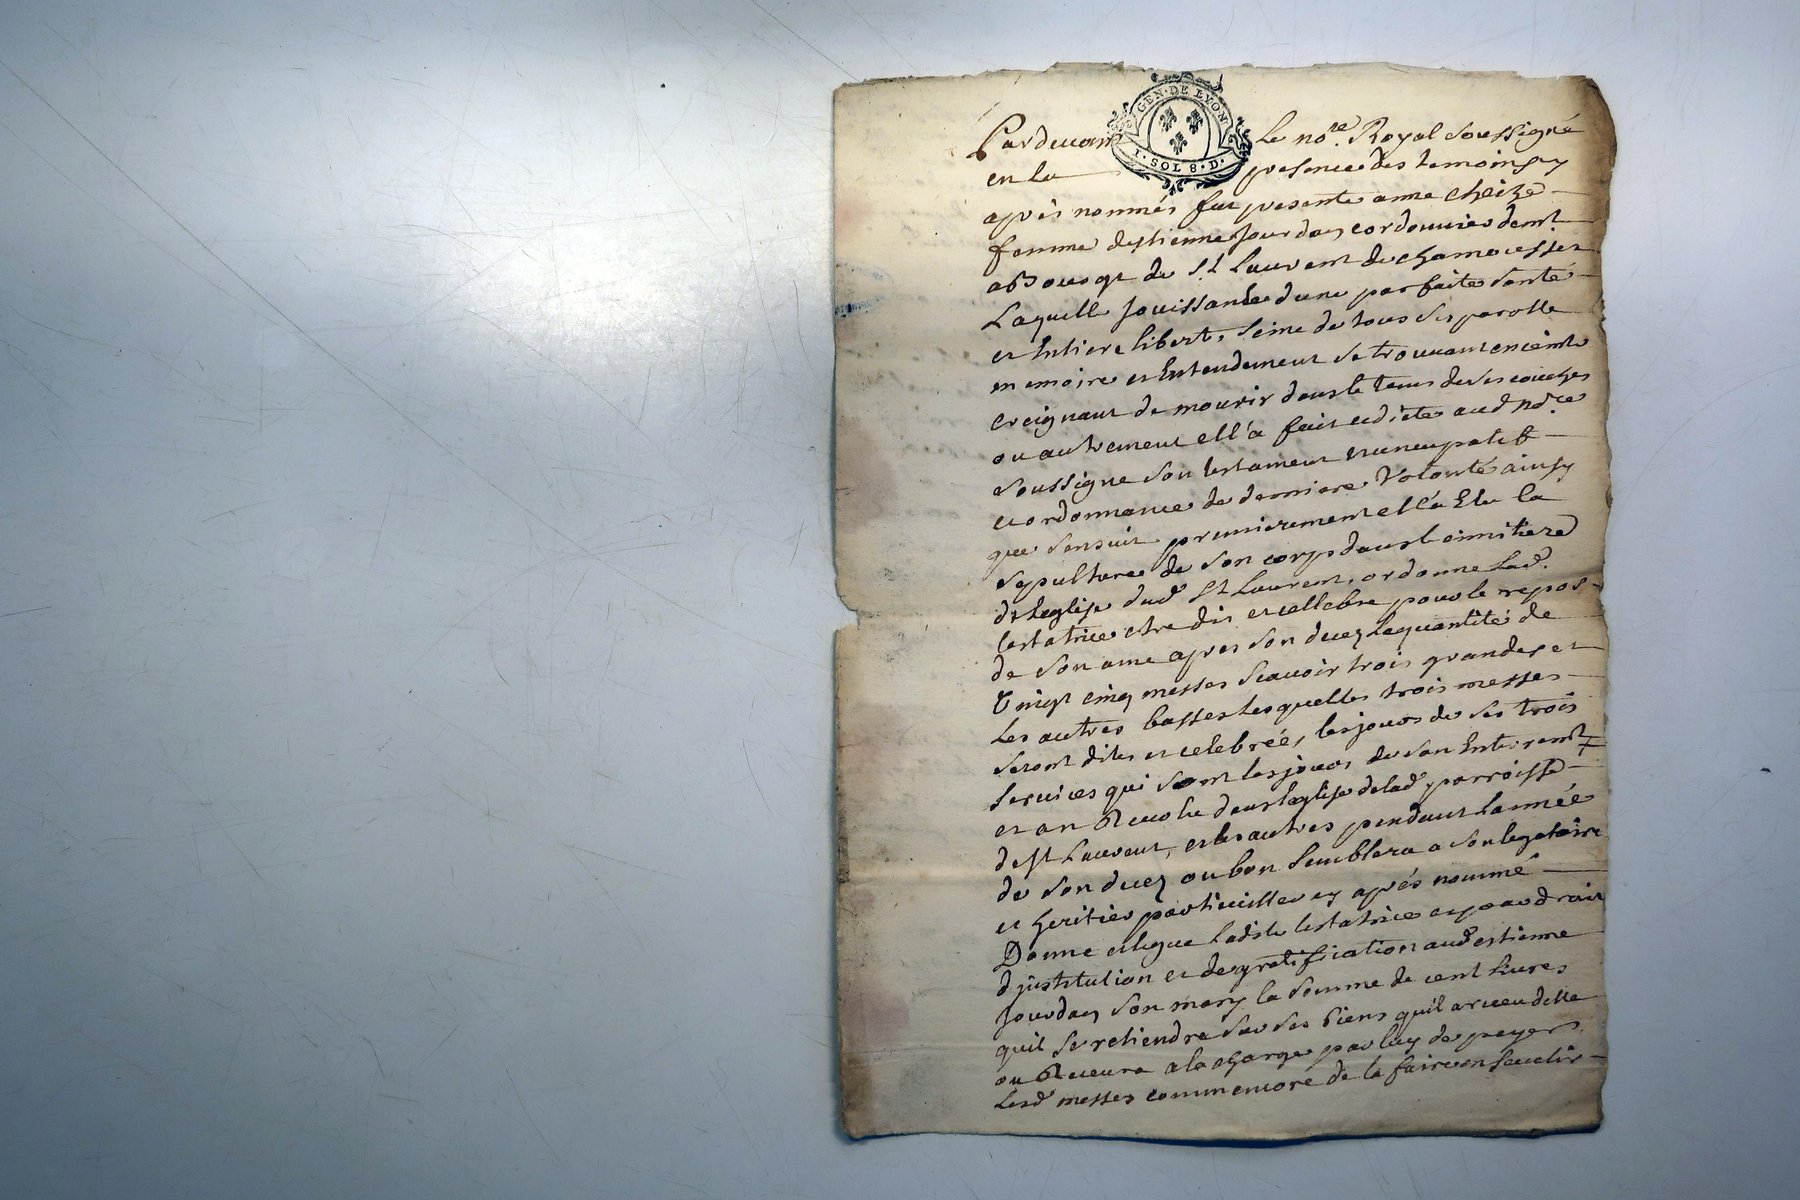 GEN · DE LYON
1 · SOL 8 · D.
Pardevant Le no.re Royal soussigné
en la presence des temoins cy
après nommés fut presente anne cheize
femme destienne Jourdan cordonnier demt.
a Bourgt de St. Laurent de chamousset
Laquelle Jouissante dune parfaite santé
et Entiere liberté, seine de tous ses parolle
memoire et Entendement se trouvant enceinte
creignant de mourir dans le tems de ses couches
ou autrement ell'a fait et dicté aud no.re
soussigne son testament nuncupatif
et ordonnance de derniere Volonté ainsy
que sensuit premierement ell'a Elu la
sepulture de son corps dans le cimitiere
de Leglise dud. St Laurent, ordonne lad.
testatrice etre dis et cellebre pour le repos
de son ame apres son decez la quantité de
Vingt cinq messes scavoir trois grandes et
Les autres basses lesquelles trois messes
seront dites et celebrées les jours de ses trois
services qui sont les jours de son Enterremt
et an Revolu dans leglise de lad. parroisse
de St Laurent, et les autres pendant lannée
de son decez ou bon semblera a son legataire
et heritier particuillier cy après nommé
Donne et legue ladite testatrice et par droit
djnstitution et de gratiffication aud estienne
Jourdan son mary la somme de cent livres
quil se retiendra sur ses biens quil a receu delle
ou Recevra a la charge par luy de payer
Lesd. messes comm encore de la faire en sevelir